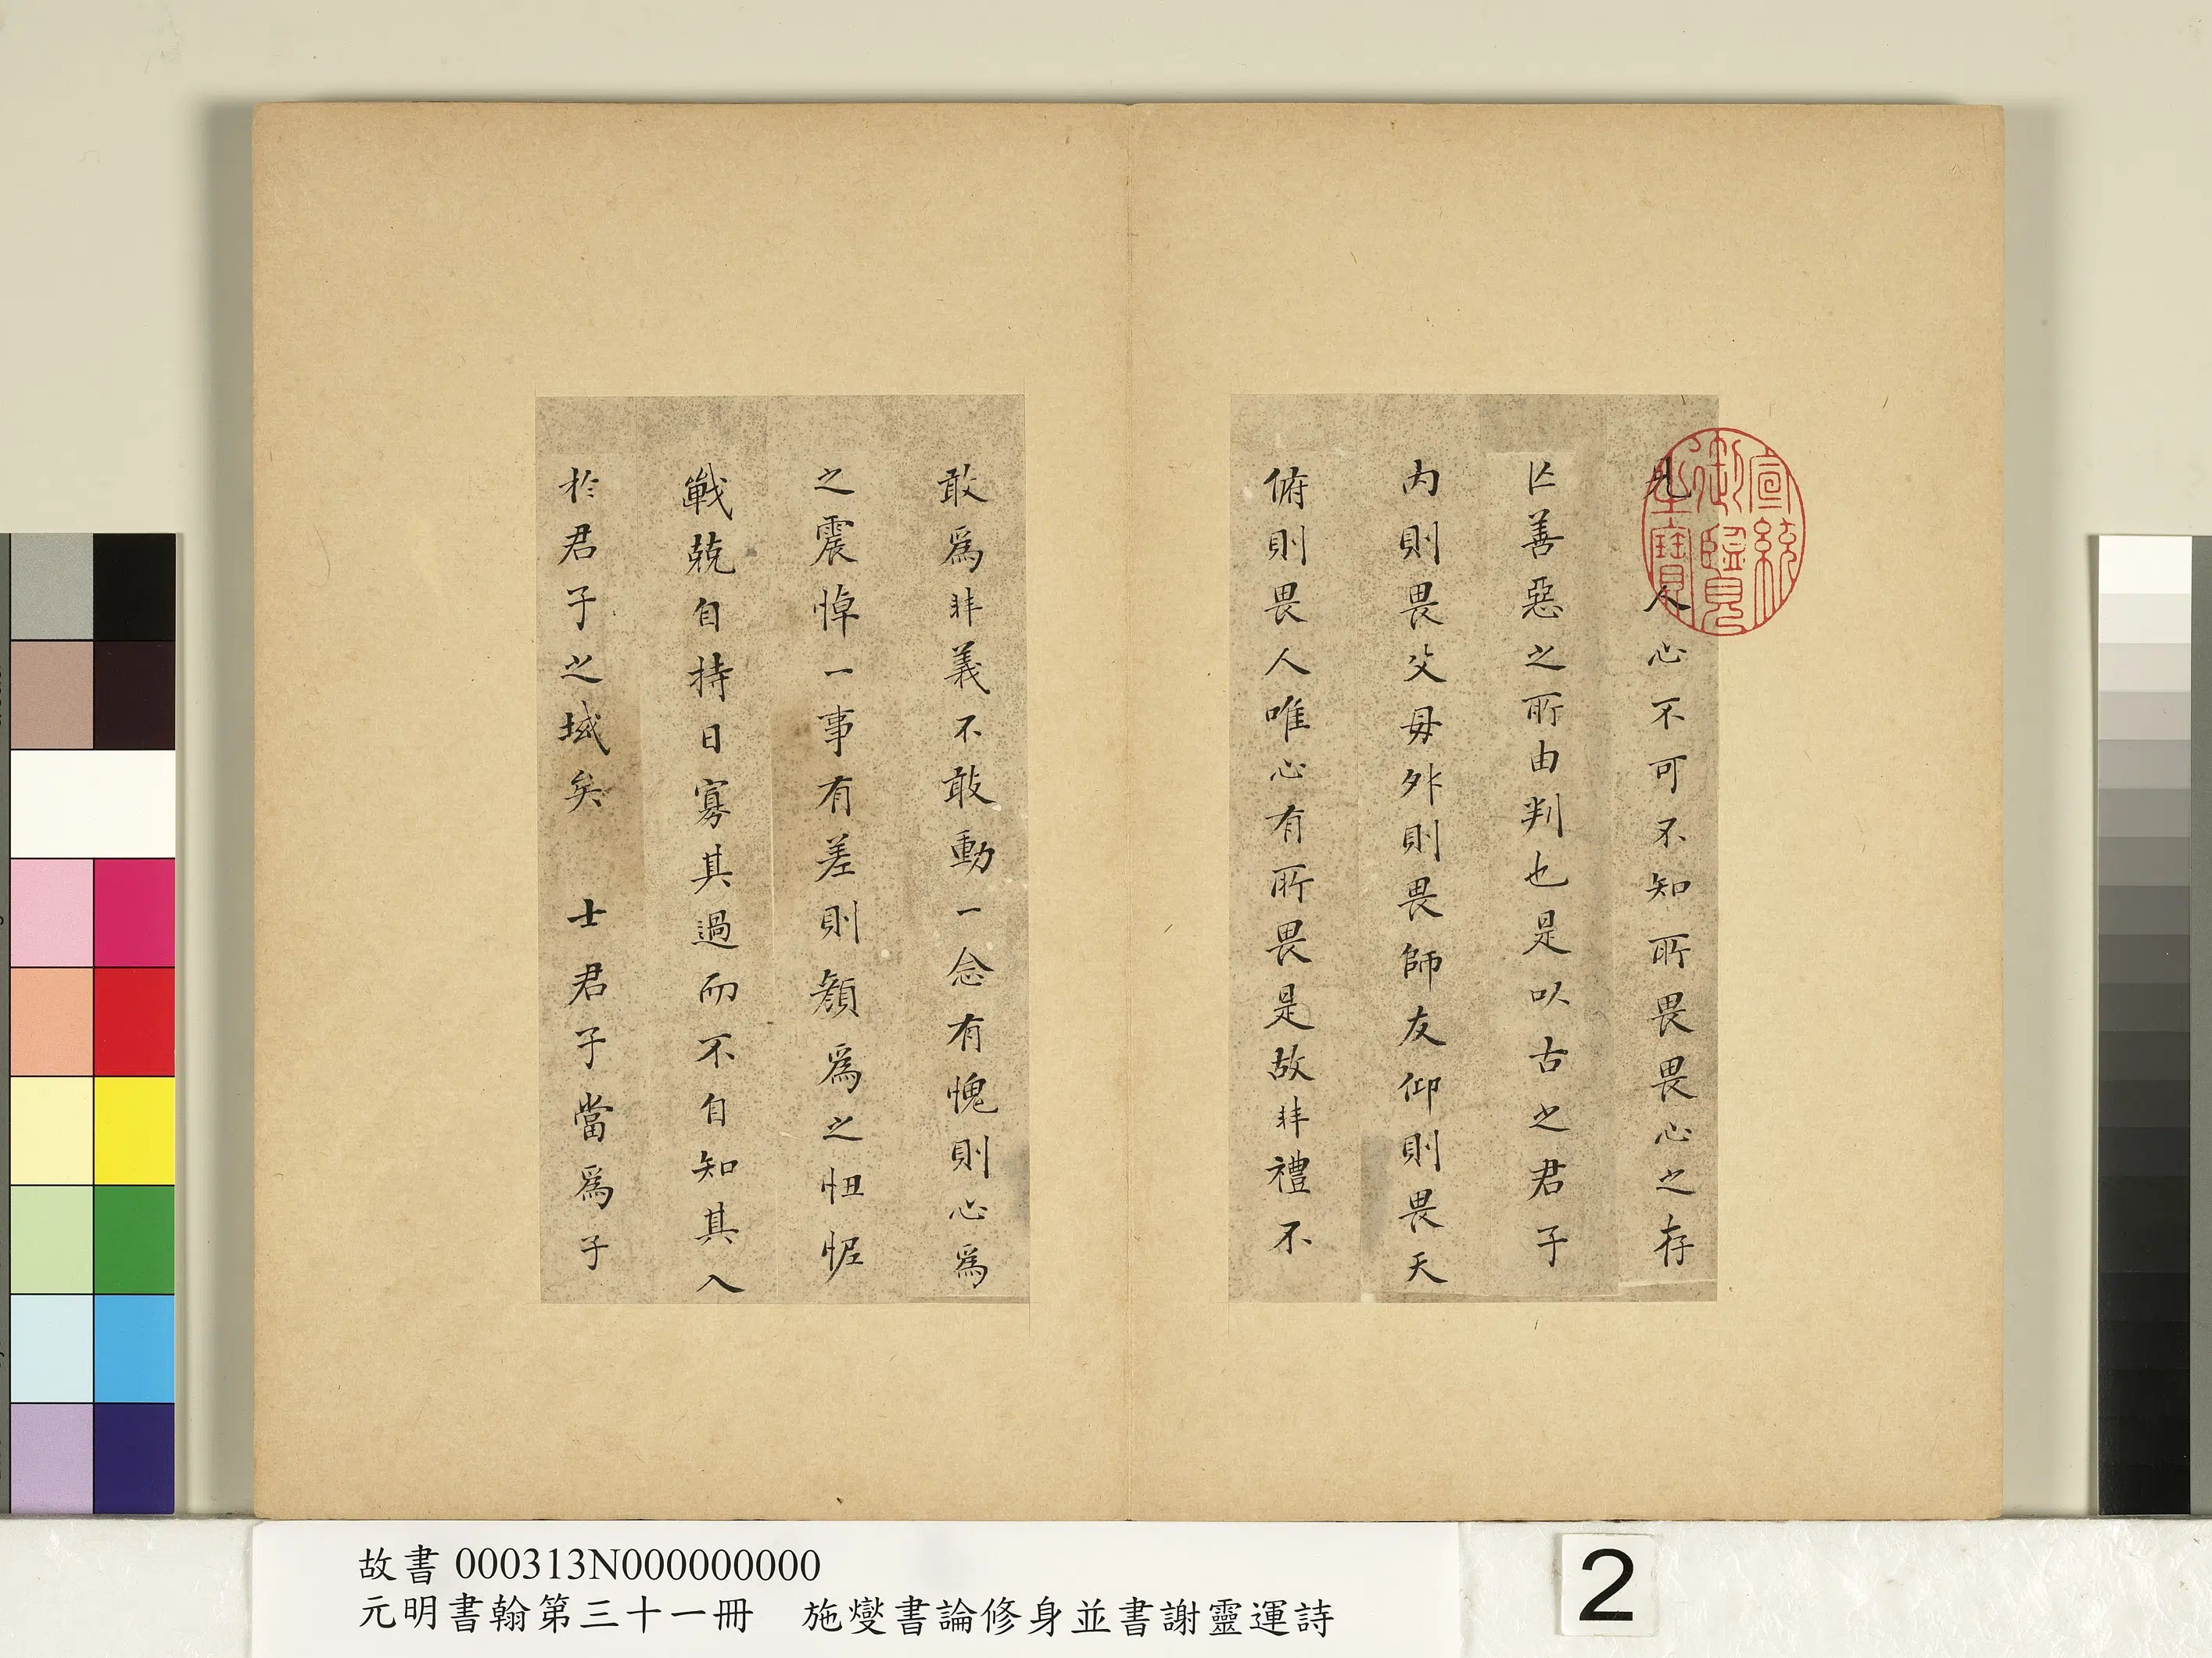 凡人心不可不知所畏畏心之存
亾善惡之所由判也是以古之君子
内則畏父母外則畏師友仰則畏天
俯則畏人唯心有所畏是故非禮不
敢爲非義不敢動一念有愧則心爲
之震悼一事有差則顏爲之忸怩
戰兢自持日寡其過而不自知其入
於君子之域矣 士君子當爲子
宣統御覽之寶
故書 000313N000000000
元明書翰第三十一冊 施燮書論修身並書謝靈運詩
2